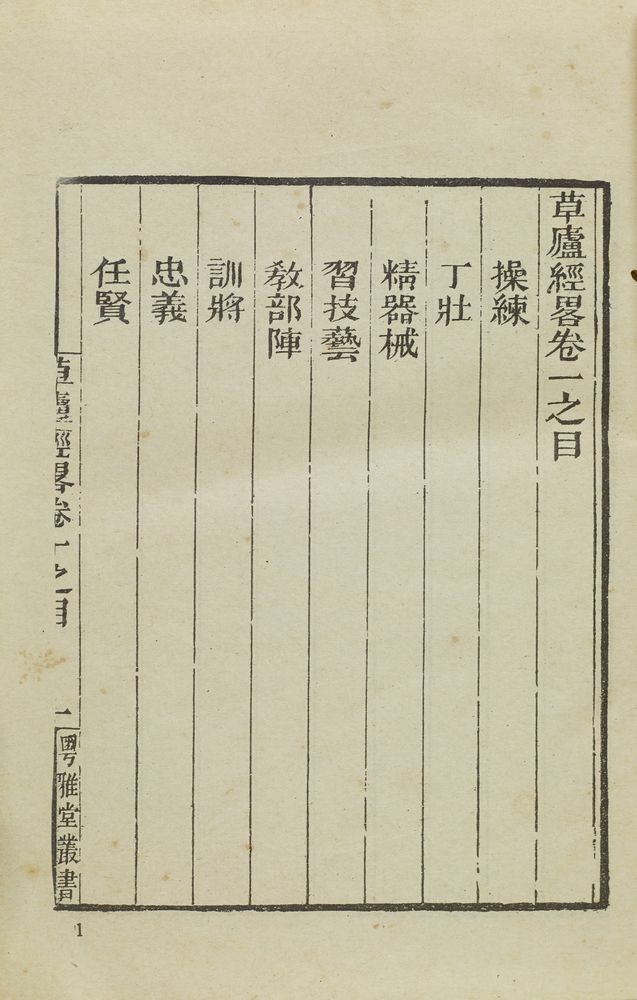 草廬經畧卷一之目
操練
丁壯
精器械
習技藝
敎部陣
訓將
忠義
任賢
草廬經畧卷一之目
一
粤雅堂叢書
1